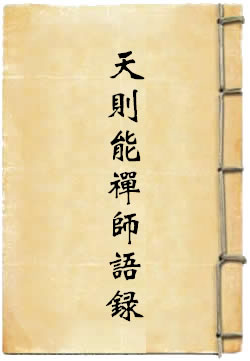 天則能禪師語録